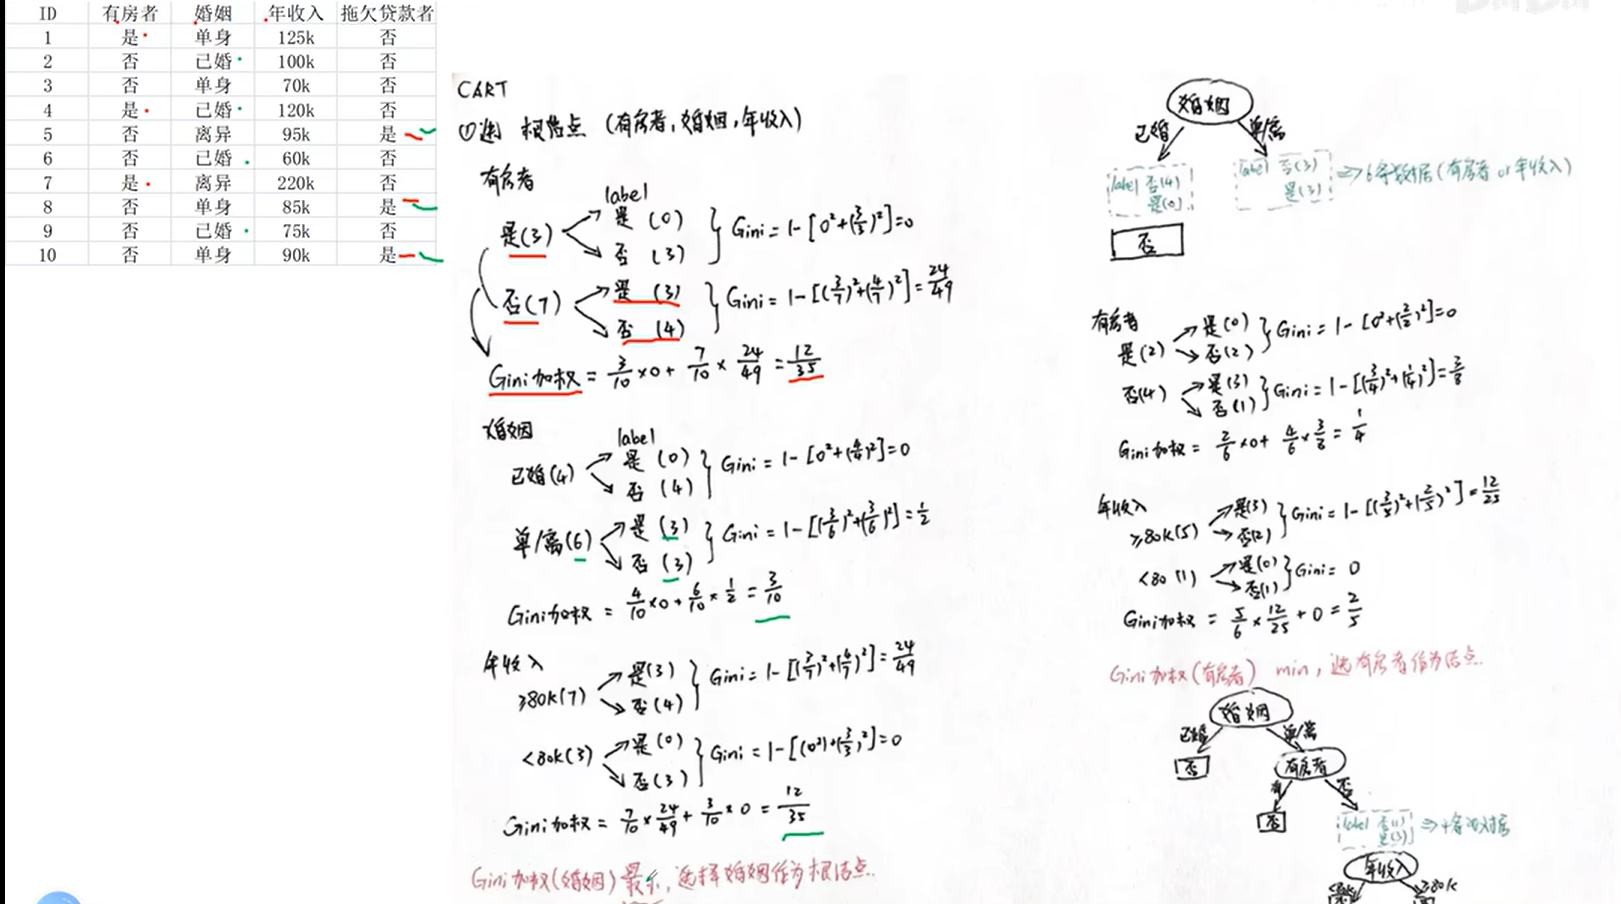 ID 有房者 婚姻 年收入 拖欠贷款者
1 是 单身 125k 否
2 否 已婚 100k 否
3 否 单身 70k 否
4 是 已婚 120k 否
5 否 离异 95k 是
6 否 已婚 60k 否
7 是 离异 220k 否
8 否 单身 85k 是
9 否 已婚 75k 否
10 否 单身 90k 是
CART
①选 根结点 (有房者,婚姻,年收入)
有房者
label
是(3) 是 (0)
否 (3)
Gini = 1-[0²+(3/3)²]=0
否(7) 是 (3)
否 (4)
Gini = 1-[(3/7)²+(4/7)²]=24/49
Gini加权 = 3/10×0+ 7/10×24/49 = 12/35
婚姻
label
已婚(4) 是 (0)
否 (4)
Gini = 1-[0²+(4/4)²]=0
单/离(6) 是 (3)
否 (3)
Gini = 1-[(3/6)²+(3/6)²]=1/2
Gini加权 = 4/10×0+6/10×1/2=3/10
年收入
≥80k(7) 是(3)
否(4)
Gini = 1-[(3/7)²+(4/7)²]=24/49
<80k(3) 是(0)
否(3)
Gini = 1-[(0²)+(3/3)²]=0
Gini加权 = 7/10×24/49+3/10×0 = 12/35
Gini加权(婚姻)最小,选择婚姻作为根结点.
婚姻
已婚 单/离
label 否(4)
是(0)
label 否(3)
是(3)
⇒6条数据(有房者or年收入)
否
有房者
是(2) 是(0)
否(2)
Gini = 1-[0²+(2/2)²]=0
否(4) 是(3)
否(1)
Gini = 1-[(3/4)²+(1/4)²]=3/8
Gini加权 = 2/6×0+ 4/6×3/8 = 1/4
年收入
≥80k(5) 是(3)
否(2)
Gini = 1-[(3/5)²+(2/5)²]=12/25
<80(1) 是(0)
否(1)
Gini= 0
Gini加权 = 5/6×12/25+0=2/5
Gini加权(有房者) min,选有房者作为结点.
婚姻
已婚 单/离
否 有房者
有 否
否
label 否(1)
是(3)
⇒4条数据
年收入
≥80k